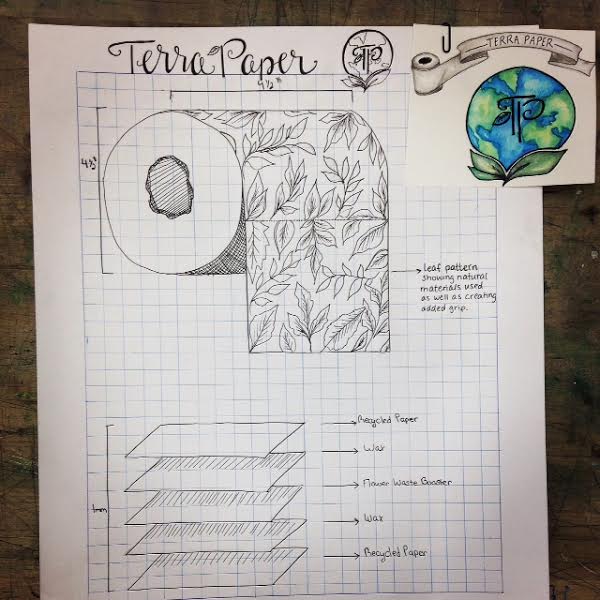 Terra Paper
TP
TERRA PAPER
TP
4½"
4½"
leaf pattern
showing natural
materials used
as well as creating
added grip.
Recycled Paper
Wax
Flower Waste
Wax
Recycled Paper
1mm